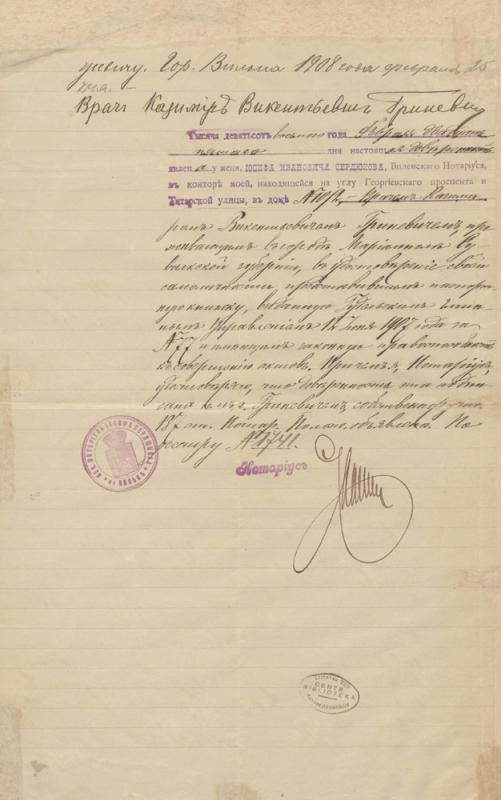 уневичу. Гор. Вильна 1908 года февраля 25
дня.
Врачъ Казимiръ Викентьевичъ Гриневичъ
Тысяча девятьсотъ восьмого года февраля двадцать
пятаго дня настоящая довѣренность
явлена у меня, ІОСИФА ИВАНОВИЧА СЕРДЮКОВА, Виленскаго Нотаріуса,
въ конторѣ моей, находящейся на углу Георгіевскаго проспекта и
Татарской улицы, въ домѣ № 10/2, врачемъ Казими-
ромъ Викентьевичемъ Гриневичемъ, про-
живающимъ въ городѣ Маріамполѣ Су-
валкской губерніи, въ удостовѣреніе своей
самоличности, представившимъ паспорт-
ную книжку, выданную
Управленіемъ 12 1907 года за
№ 77 и имѣющимъ законную правоспособность
къ совершенію актовъ. Причемъ я, Нотаріусъ,
удостовѣряю, что довѣренность эта подпи-
сана имъ, Гриневичемъ, собственноручно.
187 ст. Нотар. Полож. объявлена. По
реестру № 1741.
Нотаріусъ
CENTR.
BIBLIOTEKA